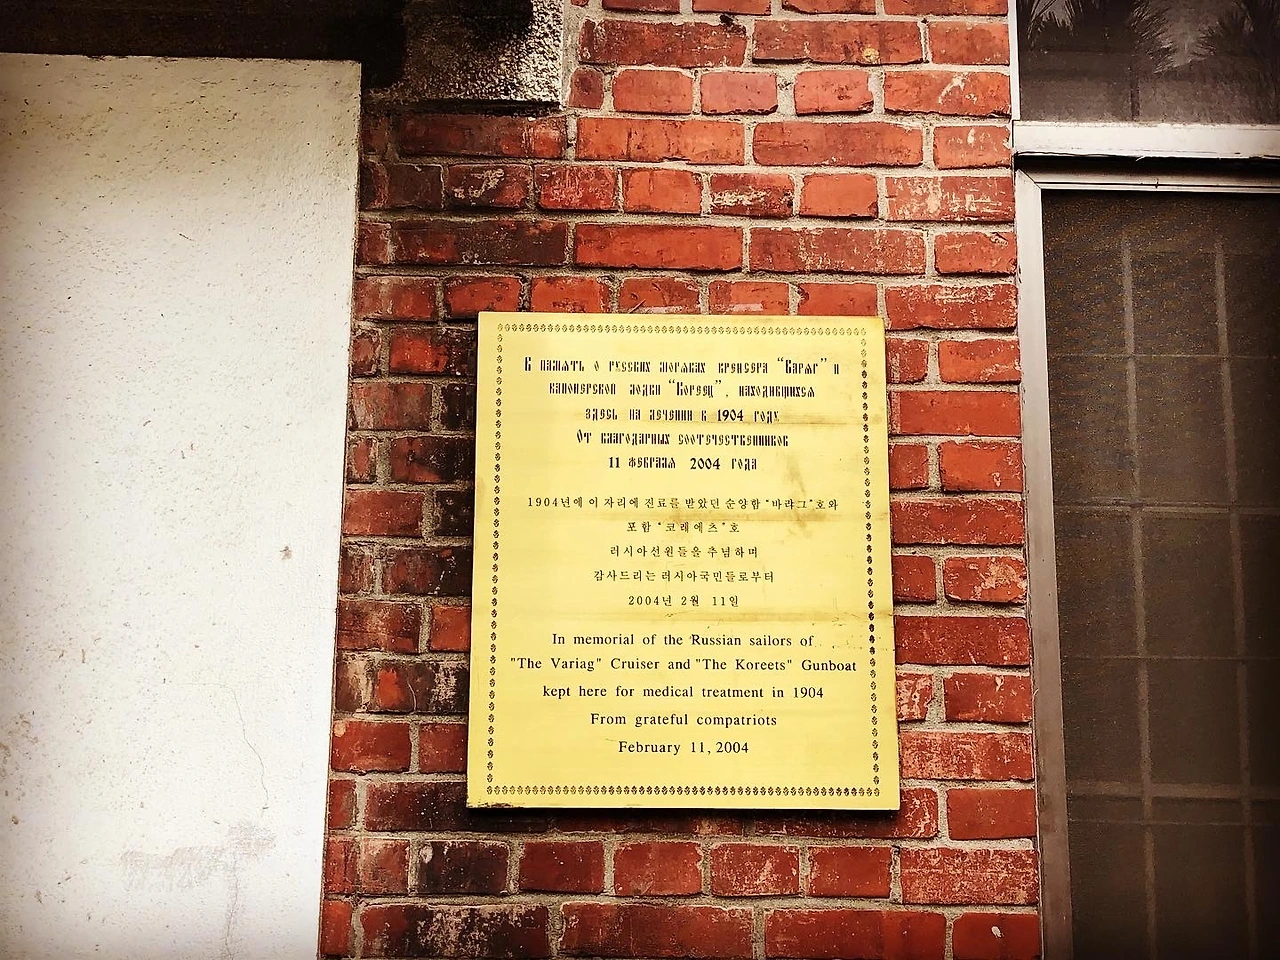 В память о русских моряках крейсера “Варяг” и
канонерской лодки “Кореец”, находившихся
здесь на лечении в 1904 году.
От благодарных соотечественников
11 февраля 2004 года
1904년에 이 자리에 진료를 받았던 순양함 "바랴그"호와
포함 "코레에츠"호
러시아선원들을 추념하며
감사드리는 러시아국민들로부터
2004년 2월 11일
In memorial of the Russian sailors of
"The Variag" Cruiser and "The Koreets" Gunboat
kept here for medical treatment in 1904
From grateful compatriots
February 11, 2004